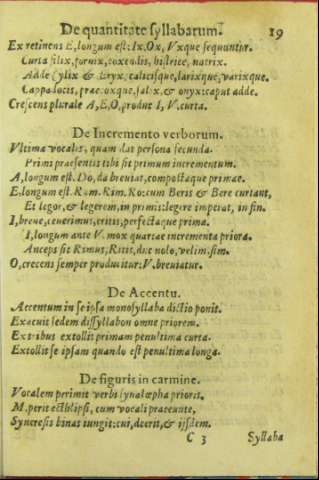 De quantitate syllabarum. 19
Ex retinens E, longum est: Ix, Ox, Vxque sequuntur.
Curta filix, fornix, coxendis, histrice, natrix.
Adde Cylix & Eryx, calicisque, larixque, varixque.
Cappadocis, praecoxque, salix, & onyx: caput adde.
Crescens plurale A, E, O, produc I, V. curta.
De Incremento verborum.
Vltima vocalis, quam dat persona secunda.
Primi praesentis tibi sit primum incrementum.
A, longum est. Do, da breviat, compostaque primae.
E, longum est. Ram. Rim. Ro: cum Beris & Bere curtant,
Et legor, & legerem, in primis: legere imperat, in fin.
I, breve, ceu erimus, eritis, perfectaque prima.
I, longum ante V. mox quartae incrementa priora.
Anceps sic Rimus, Ritis, dic nolo, velim, sim.
O, crecens semper producitur: V. breviatur.
De Accentu.
Accentum in se ipsa monosyllaba dictio ponit.
Exacuit sedem dissyllabon omne priorem.
Ex tribus extollit primam penultima curta.
Extollit se ipsam quando est penultima longa.
De figuris in carmine.
Vocalem perimit verbi synaloepha prioris,
M. perit ecthlipsi, cum vocali praeeunte,
Syneresis binas iungit: cui, deerit, & ijsdem.
C 3 Syllaba